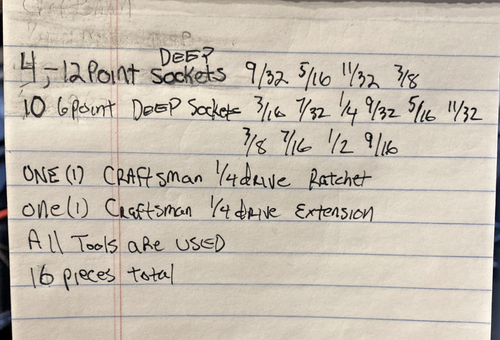 DEEP
4,-12 Point Sockets 9/32 5/16 11/32 3/8
10 6 Point DEEP Sockets 3/16 7/32 1/4 9/32 5/16 11/32
3/8 7/16 1/2 9/16
ONE (1) CRAftsman 1/4 drive Ratchet
one (1) Craftsman 1/4 drive Extension
All Tools aRe USED
16 pieces total